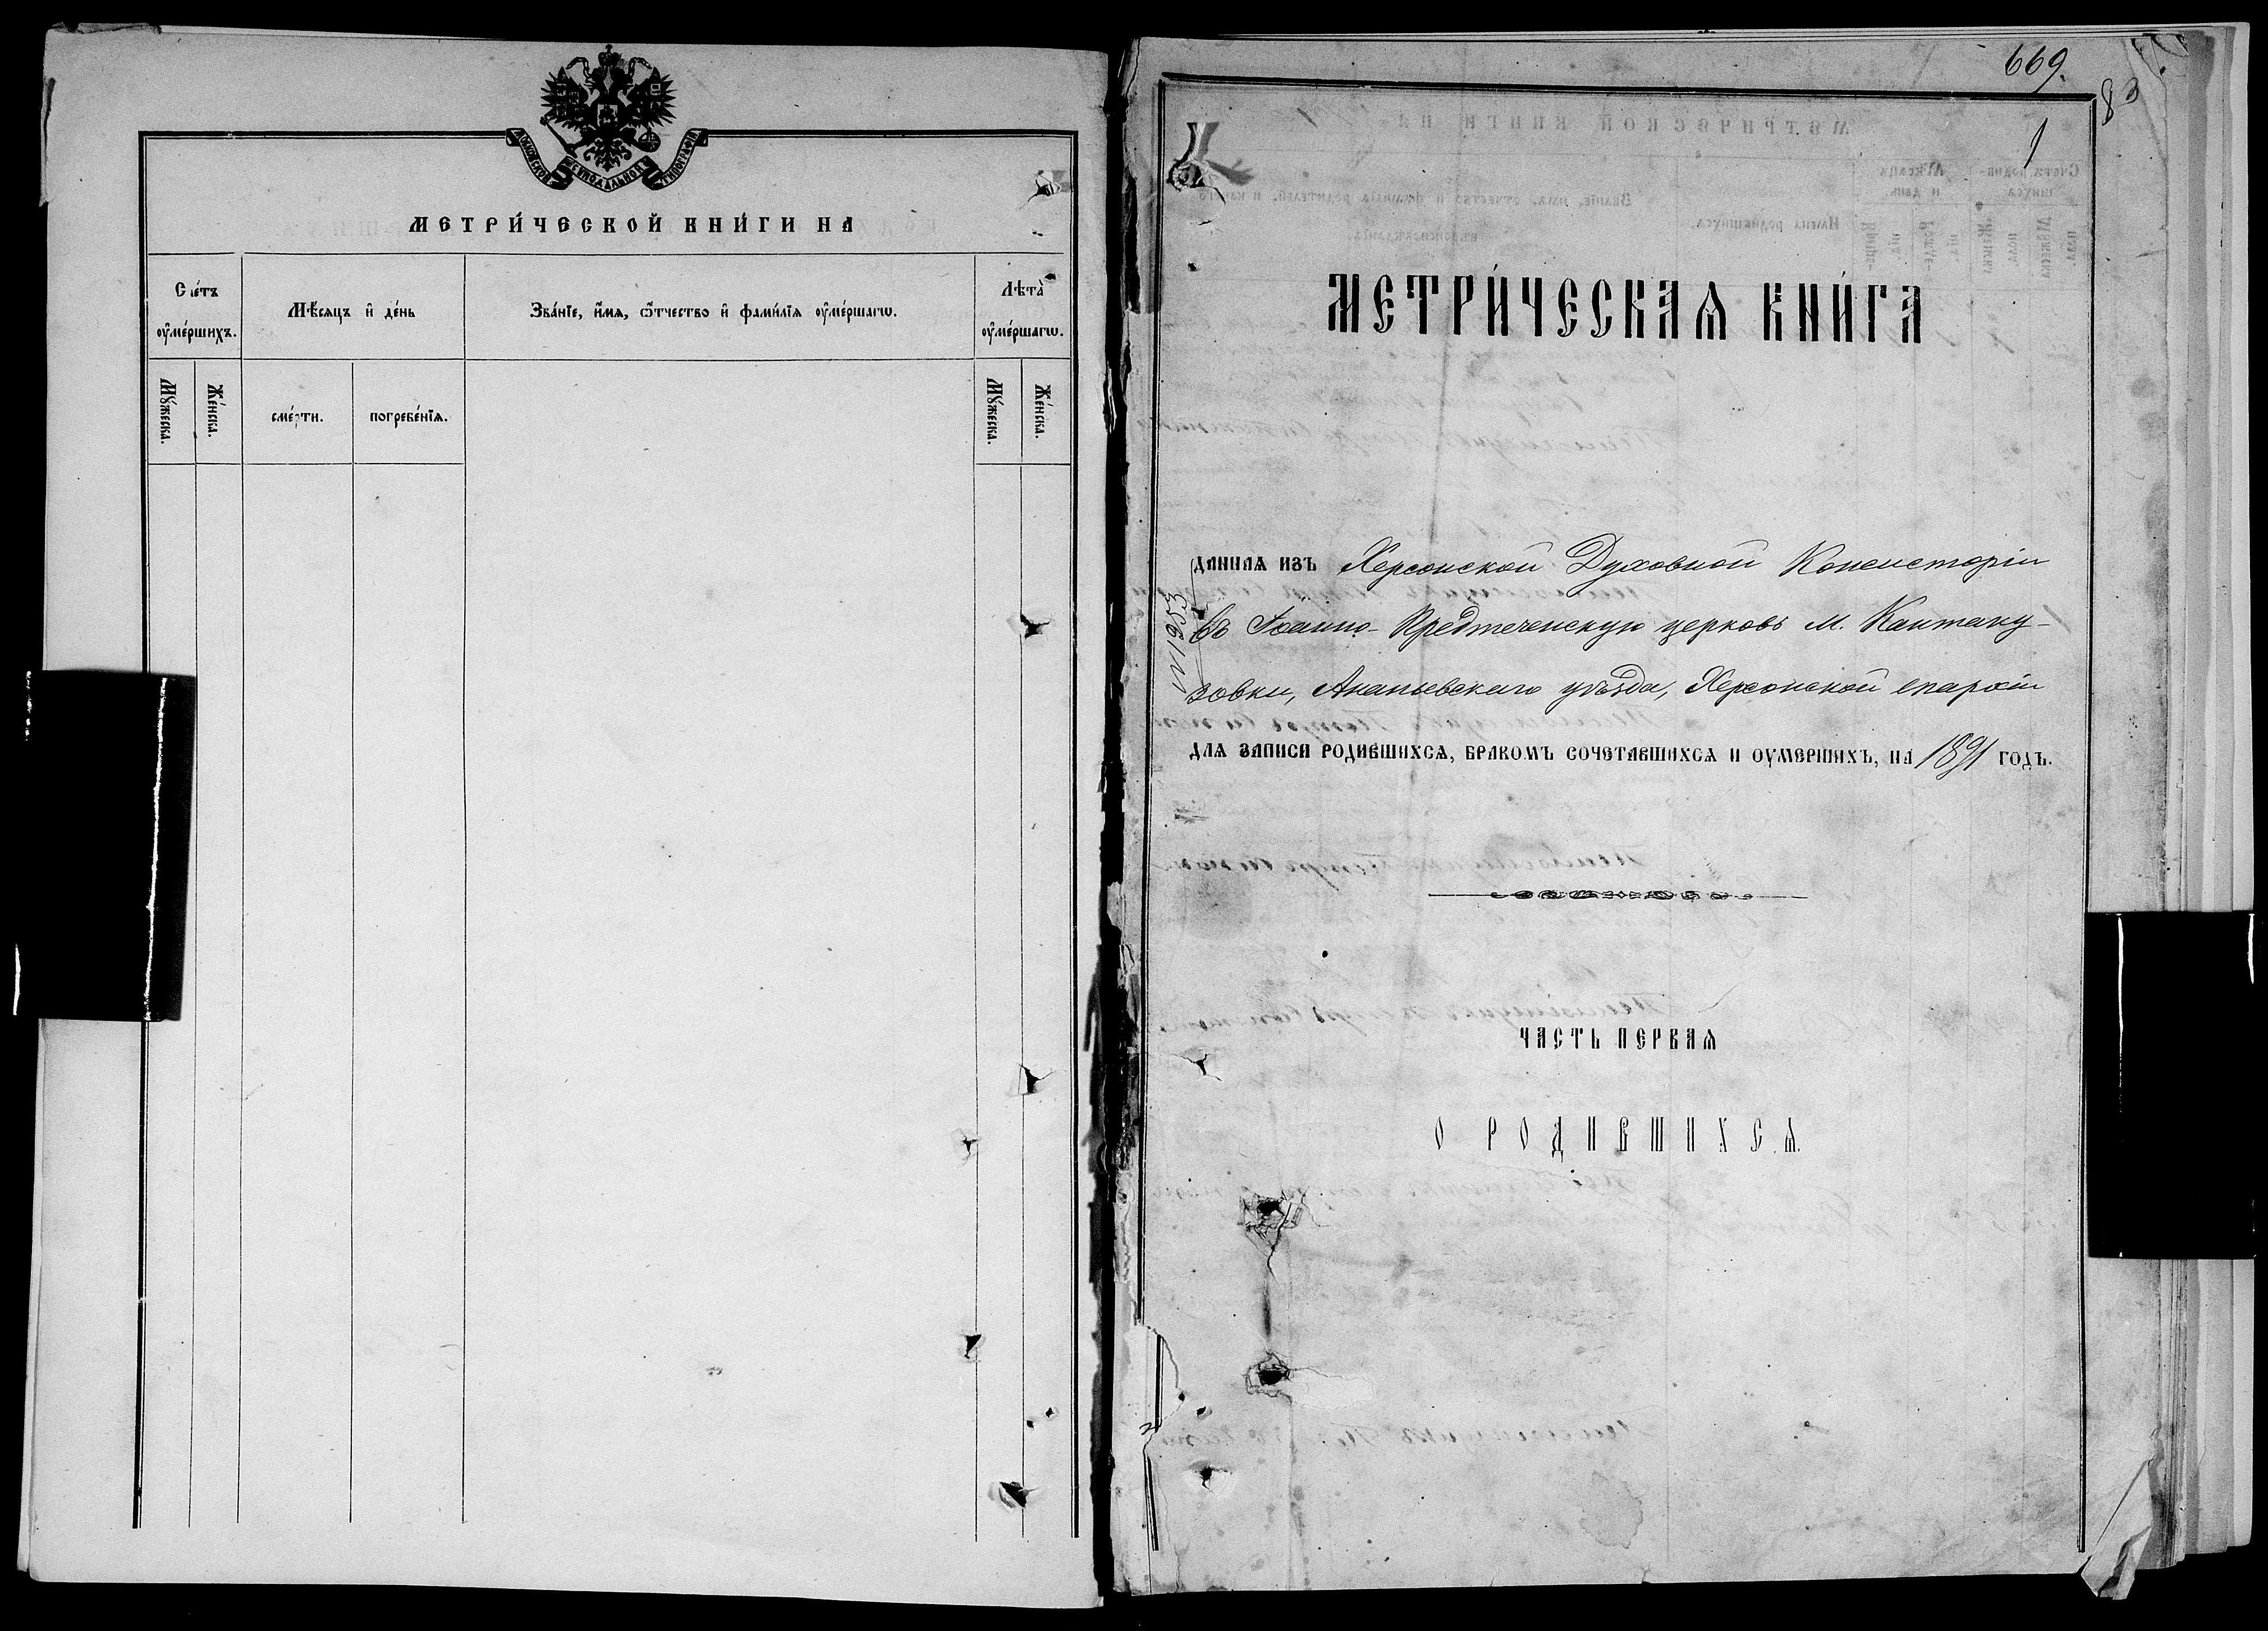 МОСКОВСКОЙ СѴНОДАЛЬНОЙ ТИПОГРАФІИ
МЕТРИ́ЧЕСКОЙ КНИ́ГИ НА
Сче́тъ
оу҆ме́ршихъ.
Мѣ́сяцъ и҆ де́нь
Зва́нїе, и҆́мя, ѻ҆́тчество и҆ фами́лїя оу҆ме́ршагѡ.
Лѣта̀
оу҆ме́ршагѡ.
Мꙋ́жеска.
Же́нска.
сме́рти.
погребе́нїя.
Мꙋ́жеска.
Же́нска.
669.
83
1
МЕТРИ́ЧЕСКАѦ КНИ́ГА
ДАННАѦ ИЗЪ Херсонской Духовной Консисторіи
въ Іоанно-Предтеченскую церковь м. Кантаку-
зовки, Ананьевскаго уѣзда, Херсонской епархіи
N 1953
ДЛѦ ЗАПИСИ РОДИВШИХСѦ, БРАКОМЪ СОЧЕТАВШИХСѦ И ОУМЕРШИХЪ, НА 1891 ГОДЪ.
ЧАСТЬ ПЕРВАѦ
О РОДИВШИХСѦ.